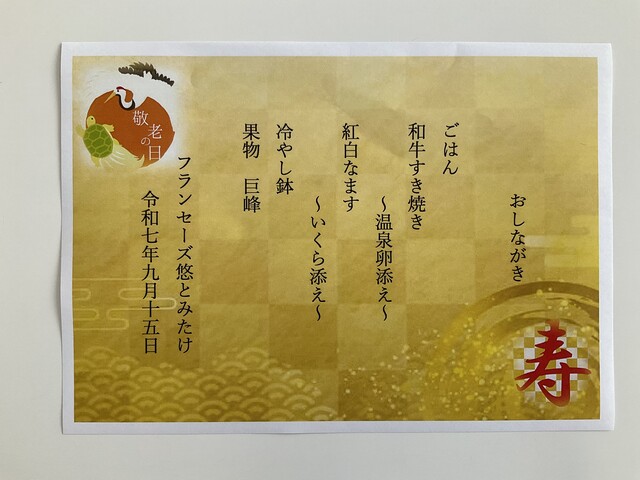 おしながき
ごはん
和牛すき焼き
～温泉卵添え～
紅白なます
～いくら添え～
冷やし鉢
果物　巨峰
フランセーズ悠とみたけ
令和七年九月十五日
敬老の日
寿